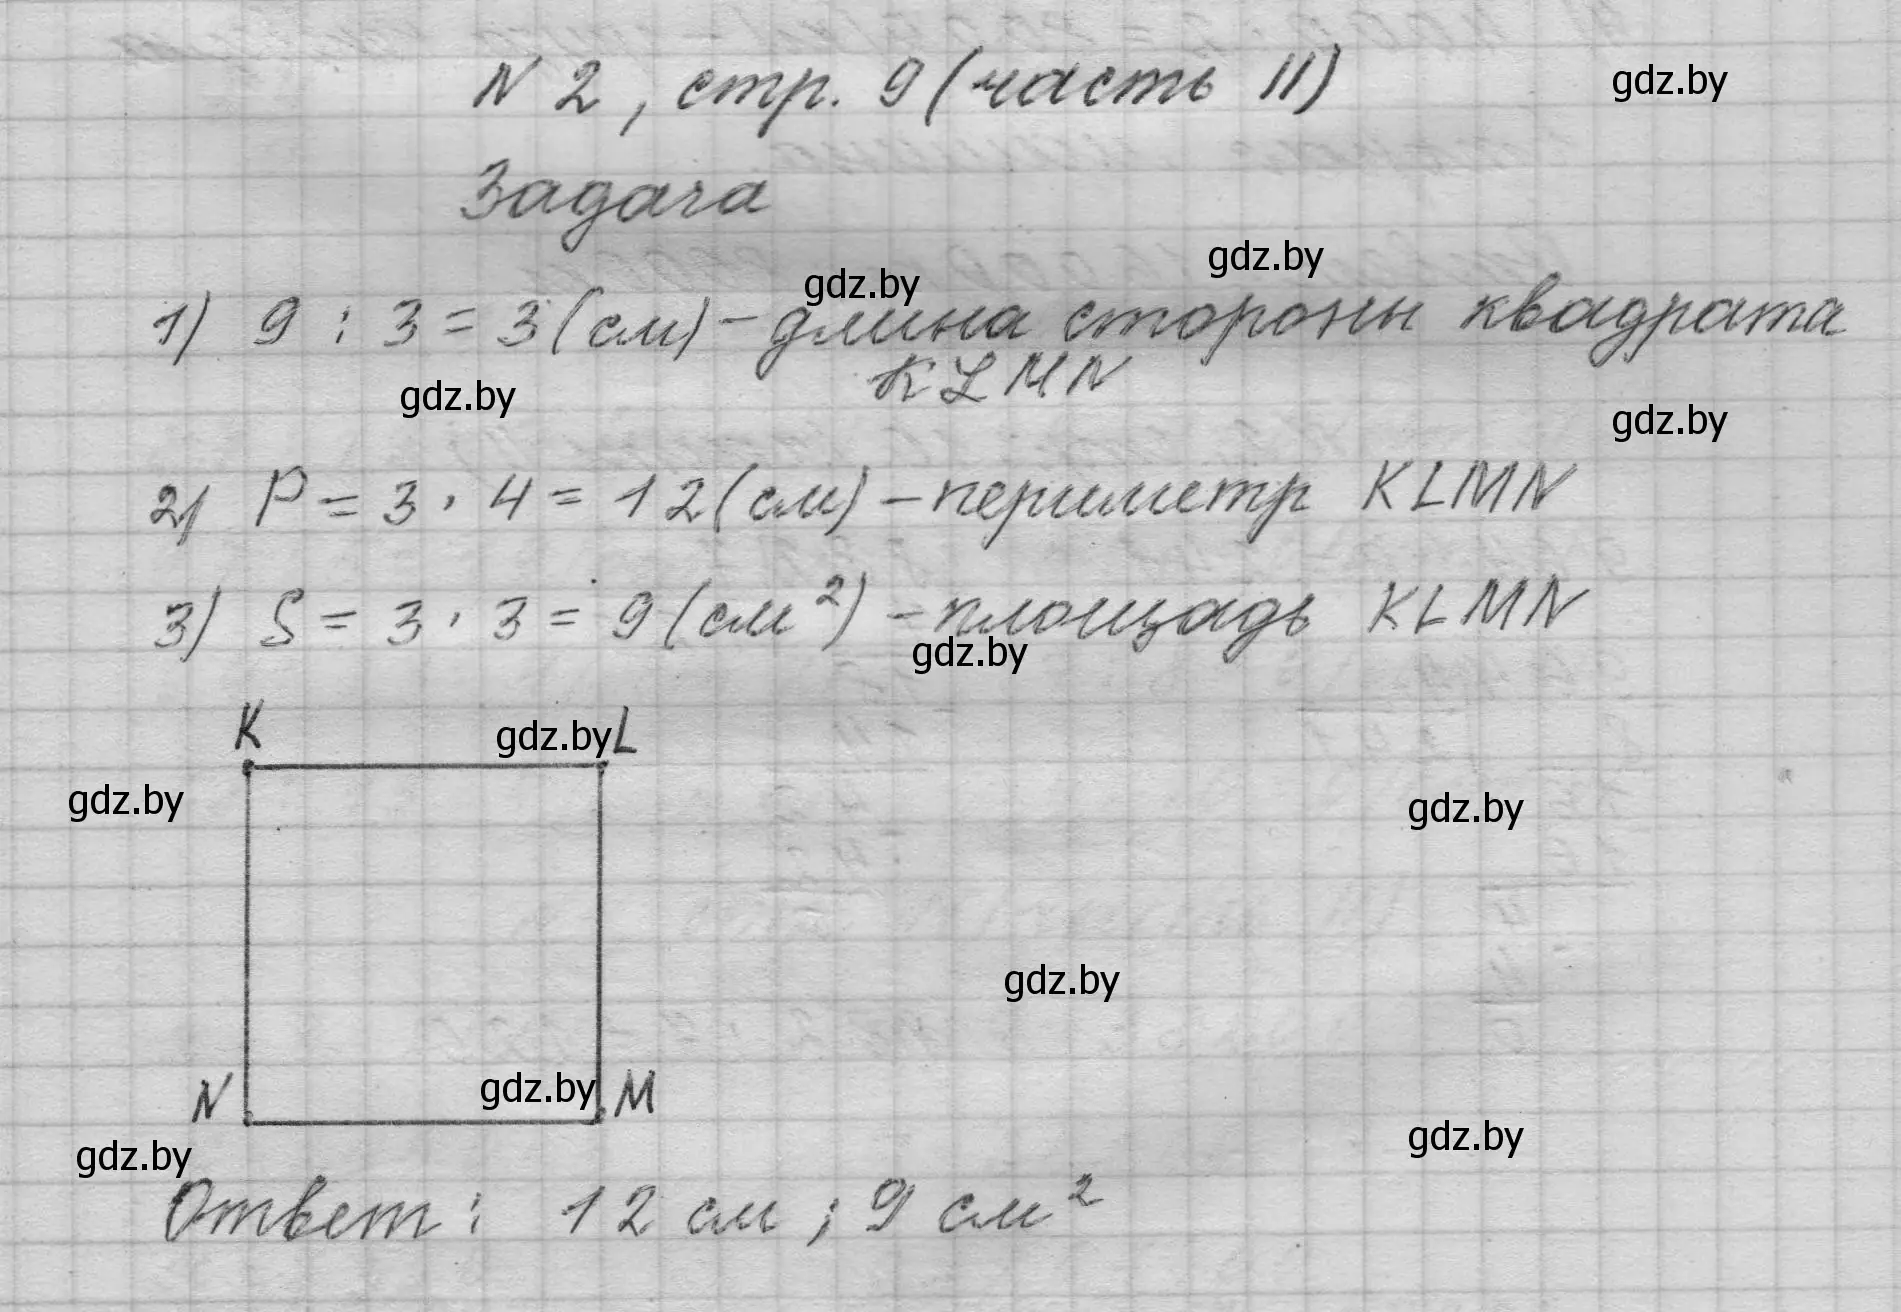 N 2, стр. 9 (часть II)
gdz.by
Задача
gdz.by
gdz.by
1) 9 : 3 = 3 (см) - длина стороны квадрата
KLMN
gdz.by
gdz.by
2) P = 3 · 4 = 12 (см) - периметр KLMN
3) S = 3 · 3 = 9 (см²) - площадь KLMN
gdz.by
K gdz.by L
gdz.by
gdz.by
gdz.by
N gdz.by M
gdz.by
gdz.by
Ответ: 12 см ; 9 см²